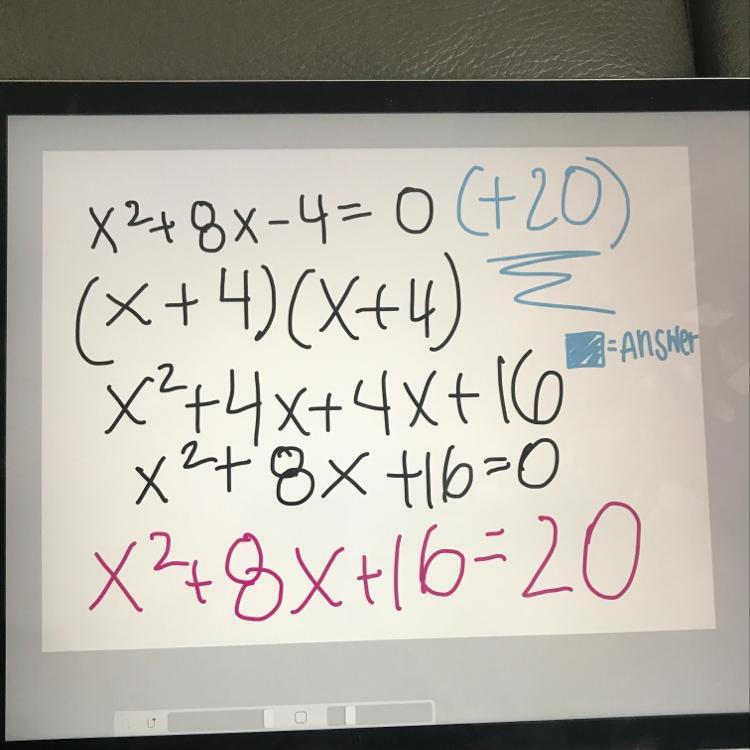 x²+8x-4=0 (+20)
(x+4)(x+4)
=Answer
x²+4x+4x+16
x²+8x+16=0
x²+8x+16=20